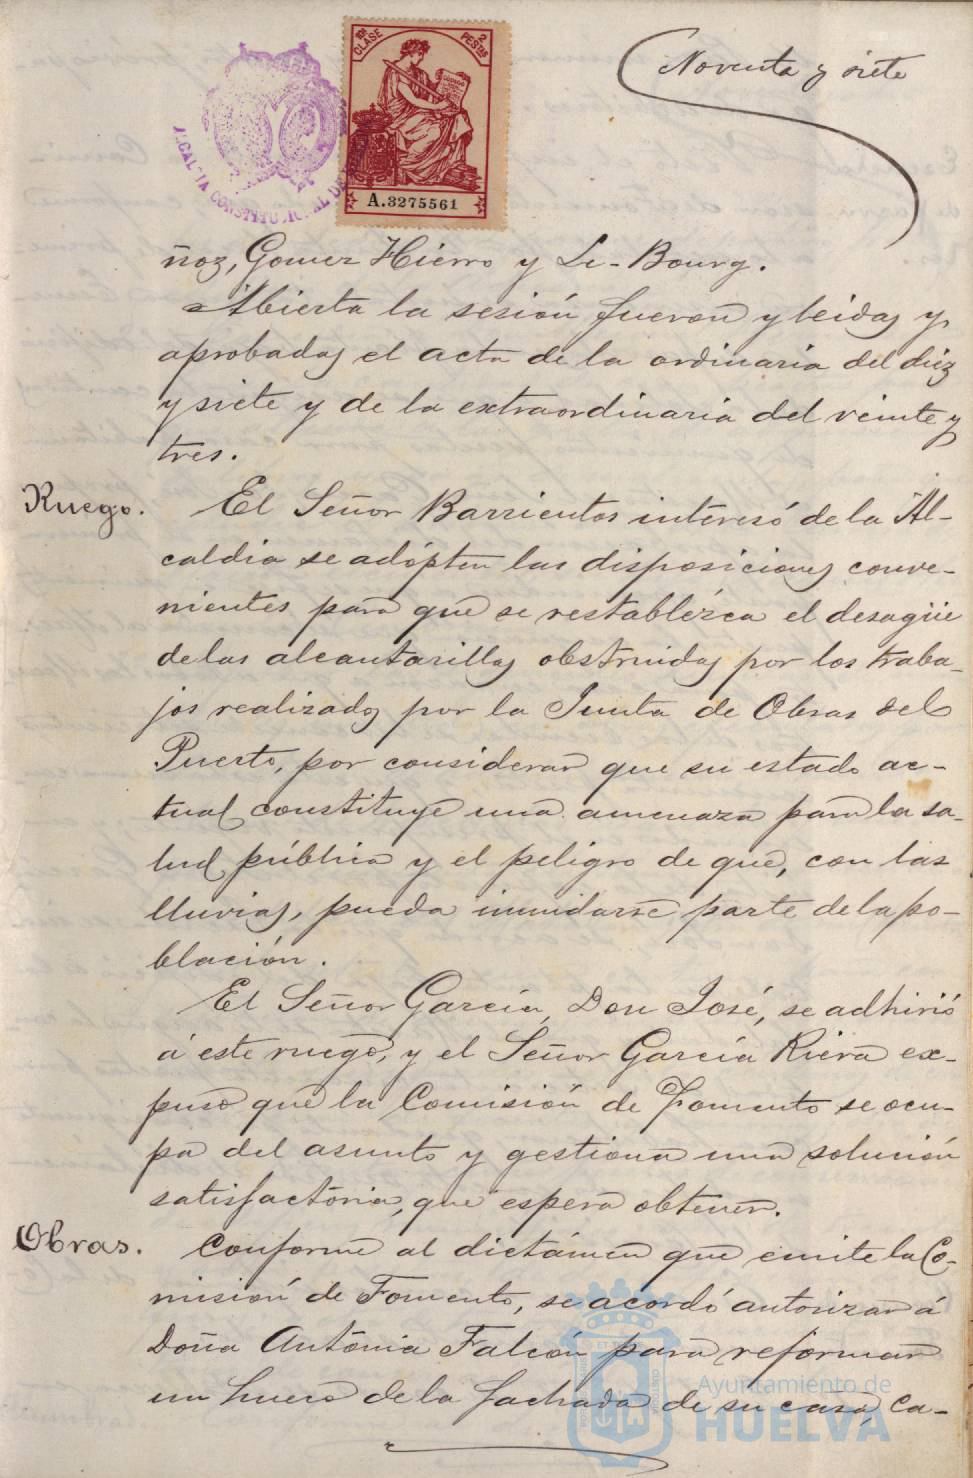 Noventa y siete
10ª CLASE
2 PESTAS
A.3275561
ALCALDIA CONSTITUCIONAL DE
ñoz, Gomez Hierro y Le-Bourg.
Abierta la sesión fueron leidas y
aprobadas el acta de la ordinaria del diez
y siete y de la extraordinaria del veinte y
tres.
Ruego.
El Señor Barrientos interesó de la Al-
caldia se adópten las disposiciones conve-
nientes para que se restablézca el desagüe
de las alcantarillas obstruidas por los traba-
jos realizados por la Junta de Obras del
Puerto, por considerar que su estado ac-
tual constituye una amenaza para la sa-
lud pública y el peligro de que, con las
lluvias, pueda inundarse parte de la po-
blación.
El Señor García, Don José, se adhirió
á este ruego, y el Señor García Riera ex-
puso que la Comisión de Fomento se ocu-
pa del asunto y gestiona una solución
satisfactoria, que espera obtener.
Obras.
Conforme al dictámen que emite la Co-
misión de Fomento, se acordó autorizar á
Doña Antónia Falcón para reformar
un hueco de la fachada de su casa, Ca-
Ayuntamiento de
HUELVA